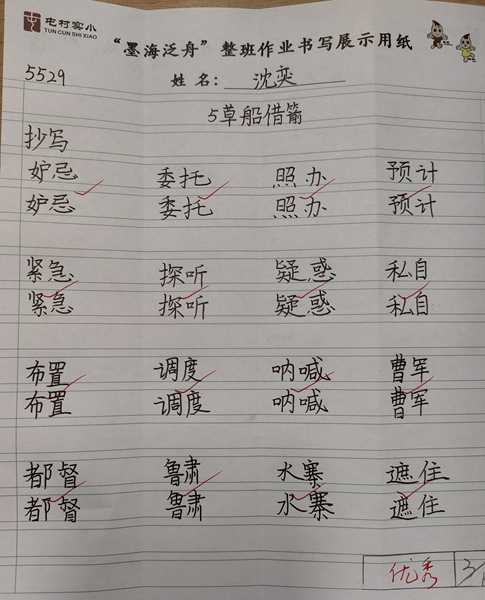 屯村实小
TUN CUN SHI XIAO
“墨海泛舟”整班作业书写展示用纸
5529
姓名：沈奕
5草船借箭
抄写
妒忌 委托 照办 预计
妒忌 委托 照办 预计
紧急 探听 疑惑 私自
紧急 探听 疑惑 私自
布置 调度 呐喊 曹军
布置 调度 呐喊 曹军
都督 鲁肃 水寨 遮住
都督 鲁肃 水寨 遮住
优秀 3/